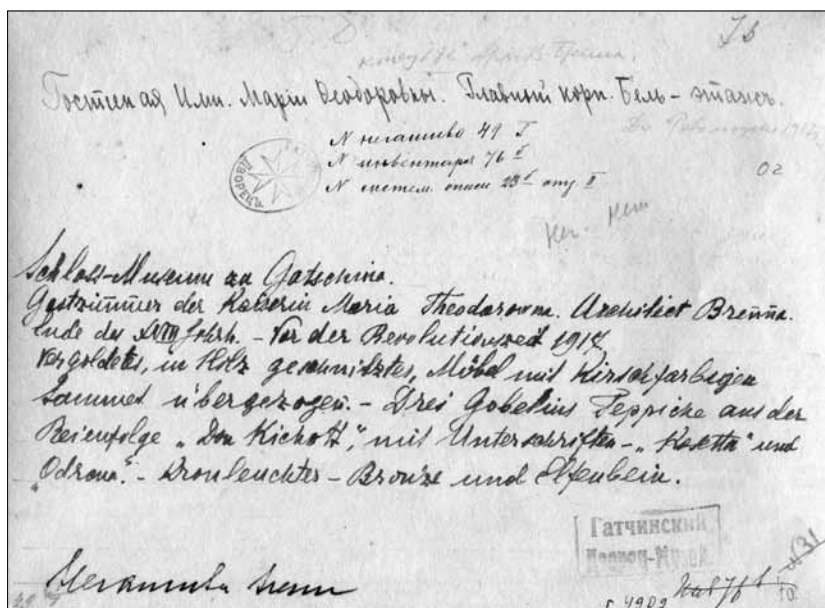 76
Гостиная Имп. Маріи Ѳеодоровны. Главный корп. Бель-этажъ.
N негатива 49 I
N инвентаря 76
N систем. описи 23
ДВОРЕЦЪ
02
Нег. нет
Schloss-Museum zu Gatschina.
Gastzimmer der Kaiserin Maria Theodorovna. Architect Brenna.
Ende des XVIII Jahrh. - Vor der Revolutionszeit 1917
Vergoldetes, in Holz geschnitztes, Möbel mit Kirschfarbigen
Sammet übergezogen. - Drei Gobelins Teppiche aus der
Reienfolge „Don Kichott", mit Unterschriften - „Kosetta" und
„Odrona". - Kronleuchter - Bronze und Elfenbein.
Гатчинский
Дворец-Музей
N 31
Негатива нет